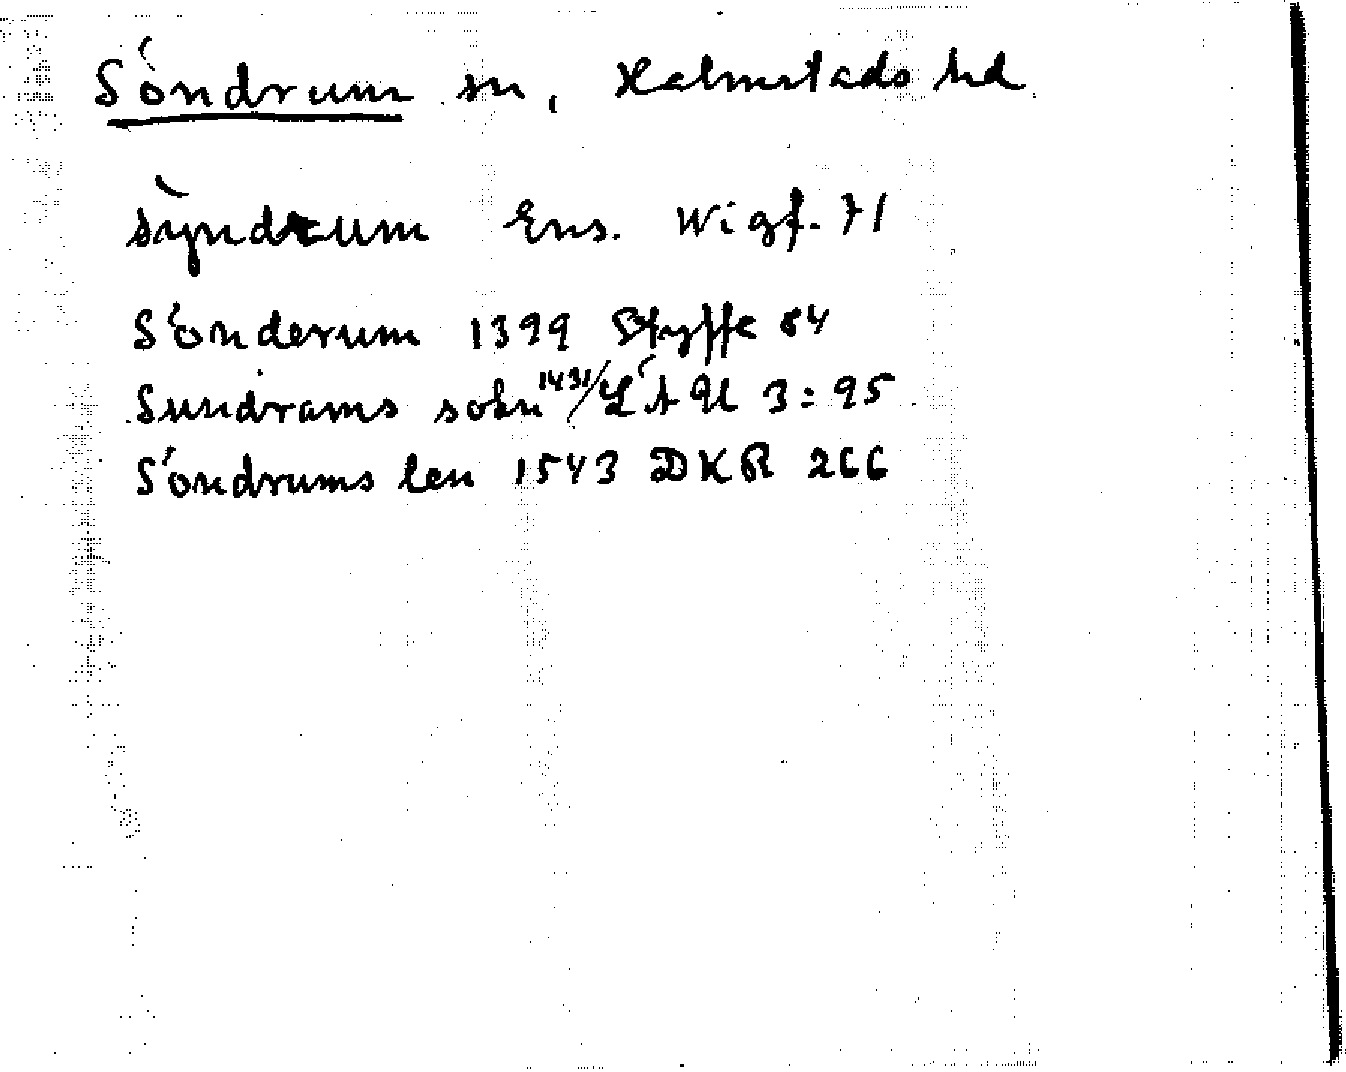 Söndrum sn, Halmstads hd
sỳndrum Ens. Wigf. 71
Sönderum 1399 Styffe 84
Sundrams sokn 1431/ LÄU 3:95
Söndrums len 1543 DKR 266